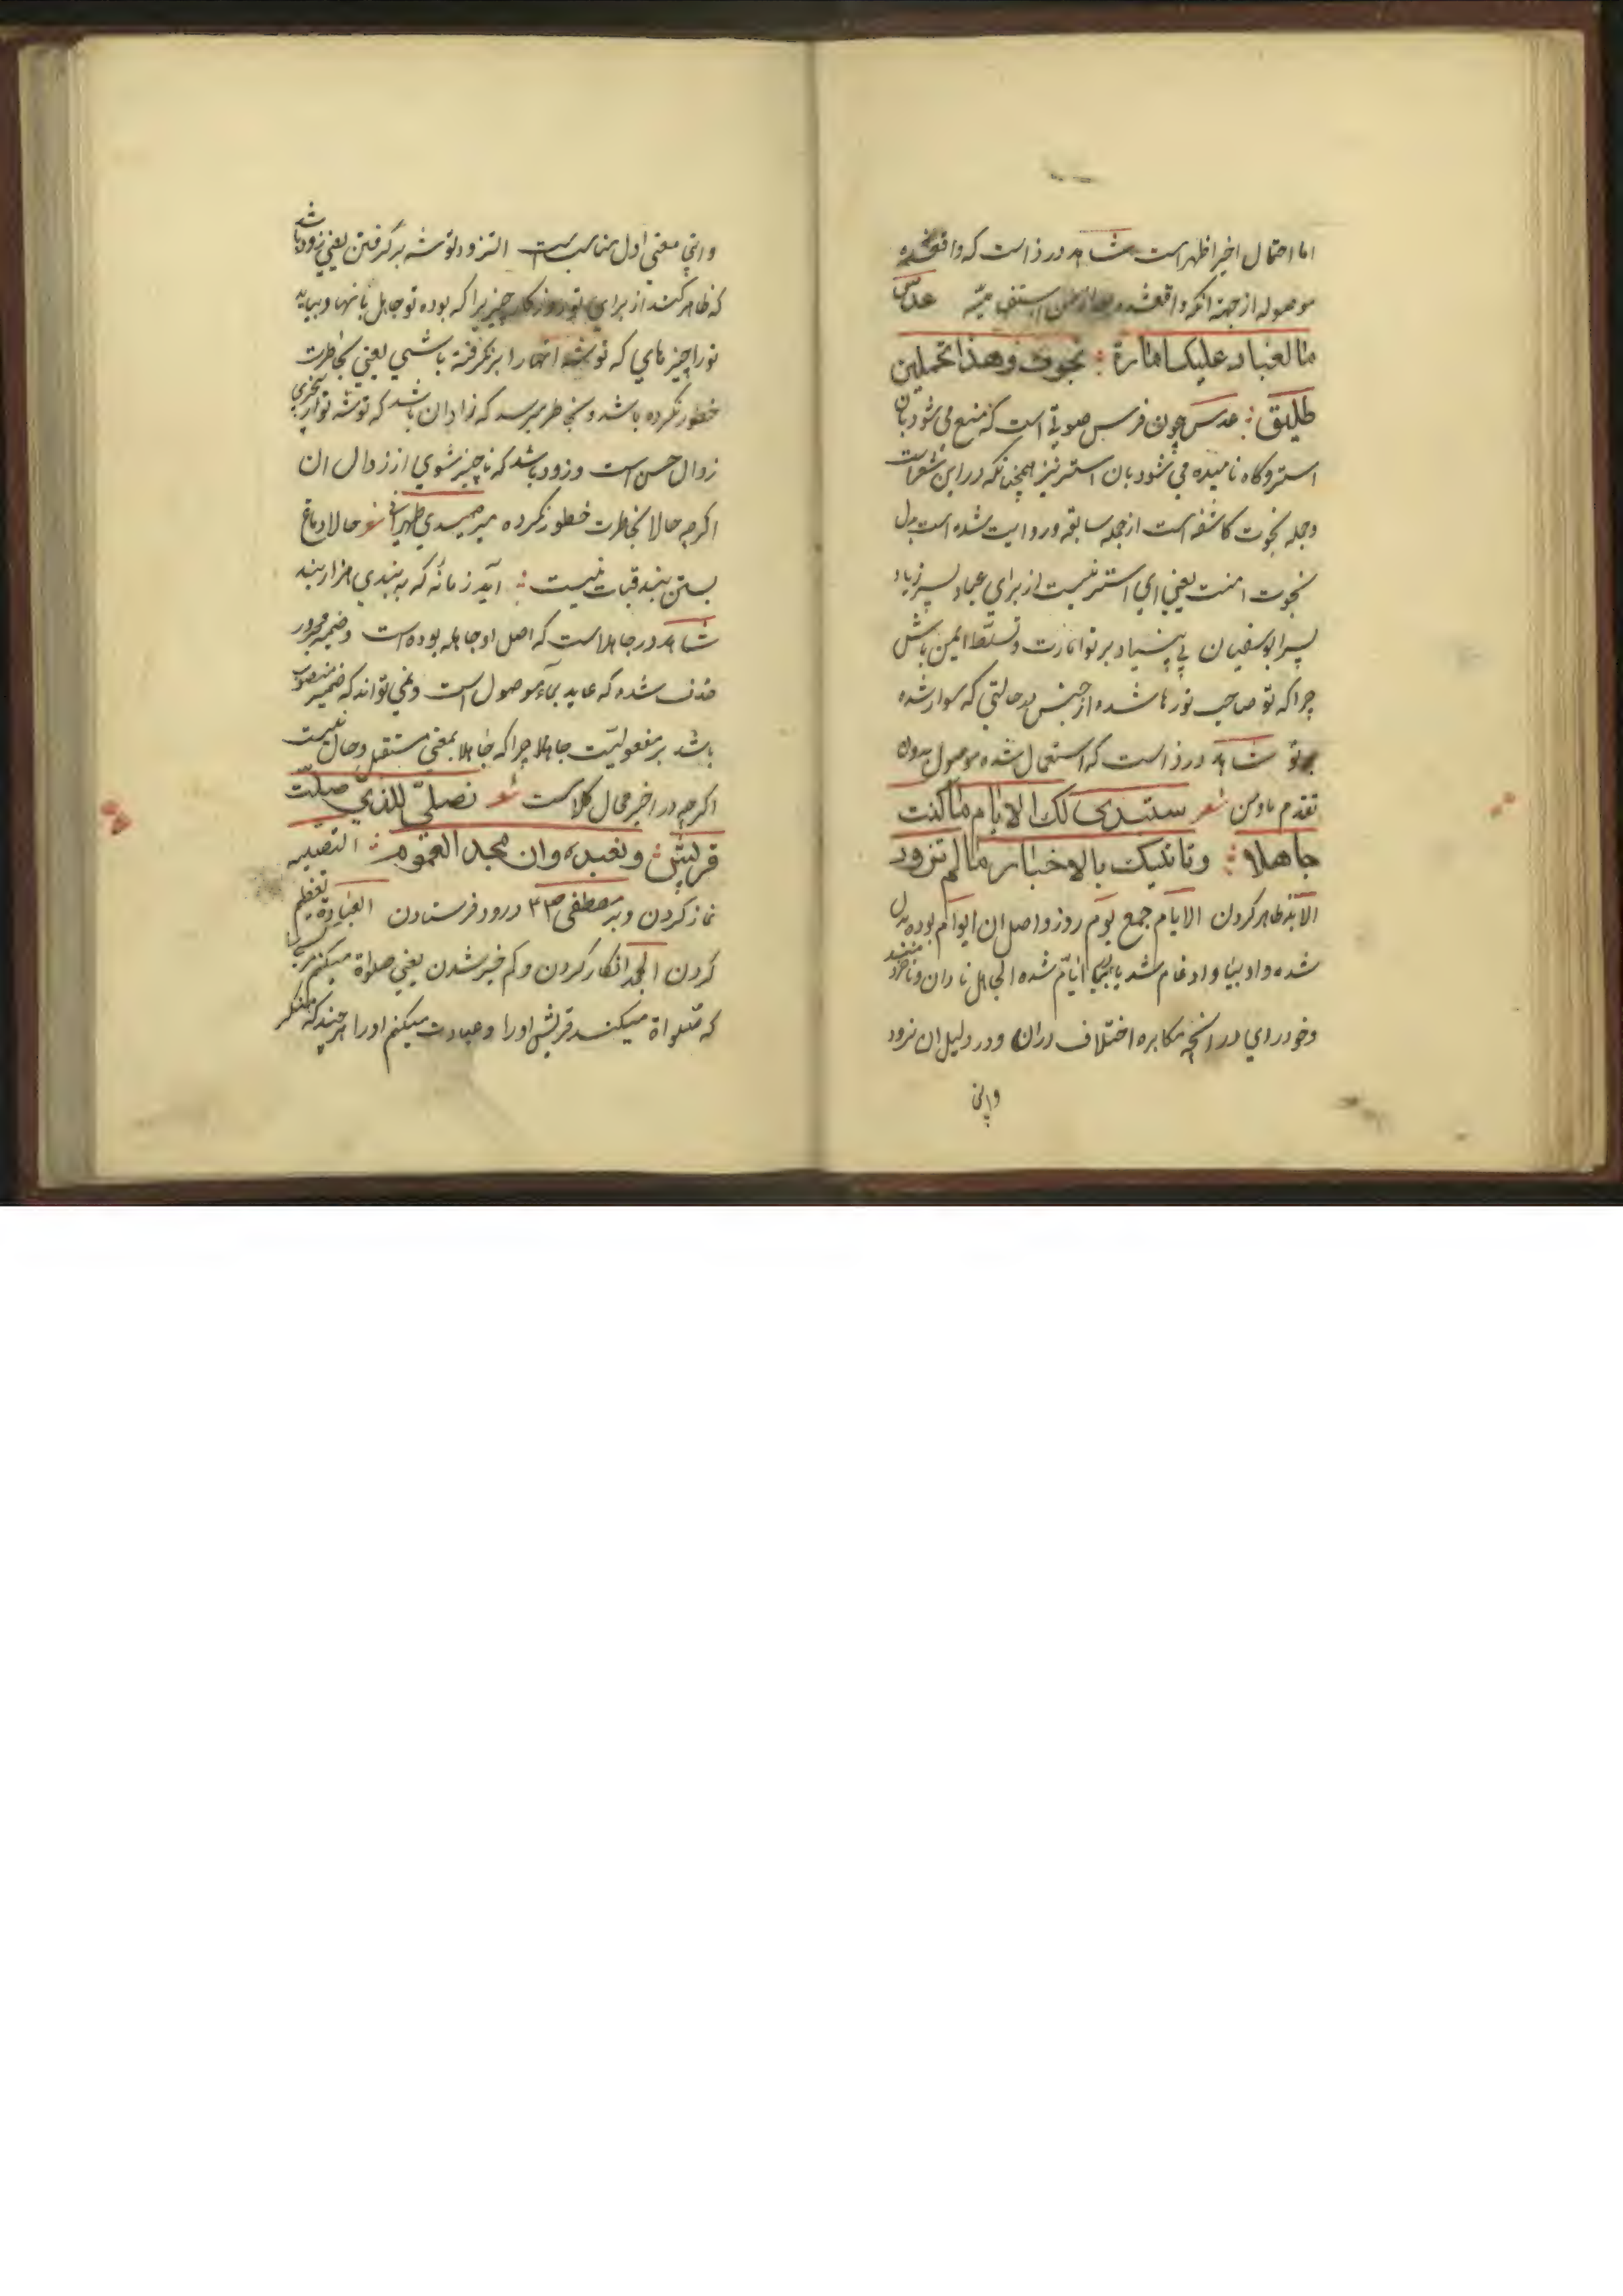 اما احتمال اخیر اظهر است شاهد در ذا است که واقعشده
موصوله از جهة انکه واقعشده بعد از من استفهامیّه عدس
ما لعباد علیک امارة نجوت وهذا تحملین
طلیق عدس چون فرس صوتی است که منع می شود بان
استر و کاه نامیده می شود بان استر نیز همچنانکه در این شعر است
و جمله نجوت کاشفه است از جمله سابقه و روایت شده است بدل
نجوت امنت یعنی ای استر نیست از برای عباد پسر زیاد
پسر ابوسفیان بر تو امارت و تسلّط ایمن باش
چرا که تو صاحب تو رها شده از حبس در حالتی که سوار شده
بر تو شاهد در ذا است که استعمال شده موصول بدون
تقدم ما و من شعر ستبدی لک الایام ما کنت
جاهلا وتاتیک بالاخبار ما لم تزود
الابد ظاهر کردن الایام جمع یوم روز و اصل ان ایوام بوده بدل
شده واو بیا و ادغام شد یا بیا ایّام شده الجاهل نادان و ناخردمند
و خودرای در انچه مکابره اختلاف دران و در دلیل ان نرود
واین
واین معنی اول مناسب است التزود توشه بر گرفتن یعنی زود باشد
که ظاهر کند از برای تو روزکار چیزیرا که بوده تو جاهل بانها و بیاید
تو را چیزهای که توشه انها را بر نکرفتة باشی یعنی بخاطرت
خطور نکرده باشد و بخاطر میرسد که زاد ان باشد که توشه تو از
زوال حسن است و زود باشد که ناچیز شوی از زوال ان
اکرچه حالا بخاطرت خطور نکرده میر صیدی طهرانی شعر حالا دماغ
بستن بند قبات نیست آید زمانه که به بندی هزار بند
شاهد در جاهلا است که اصل او جاهله بوده است و ضمیر مجرور
حذف شده که عاید بماء موصول است و نمی تواند که ضمیر منصوب
باشد بر مفعولیّت جاهلا چرا که جاهلا بمعنی مستقبل و حال نیست
اکرچه در اخر محال کلا است شعر نصلّی للذی صلّت
قریش ونعبده وان جحد العموم التصلیه
نماز کردن و بر مصطفی ص درود فرستادن العبادة تعظیم
کردن الجحد انکار کردن و کم خیر شدن یعنی صلواة میکنم
که صلواة میکند قریش اورا و عبادت میکنم اورا هر چند که منکر